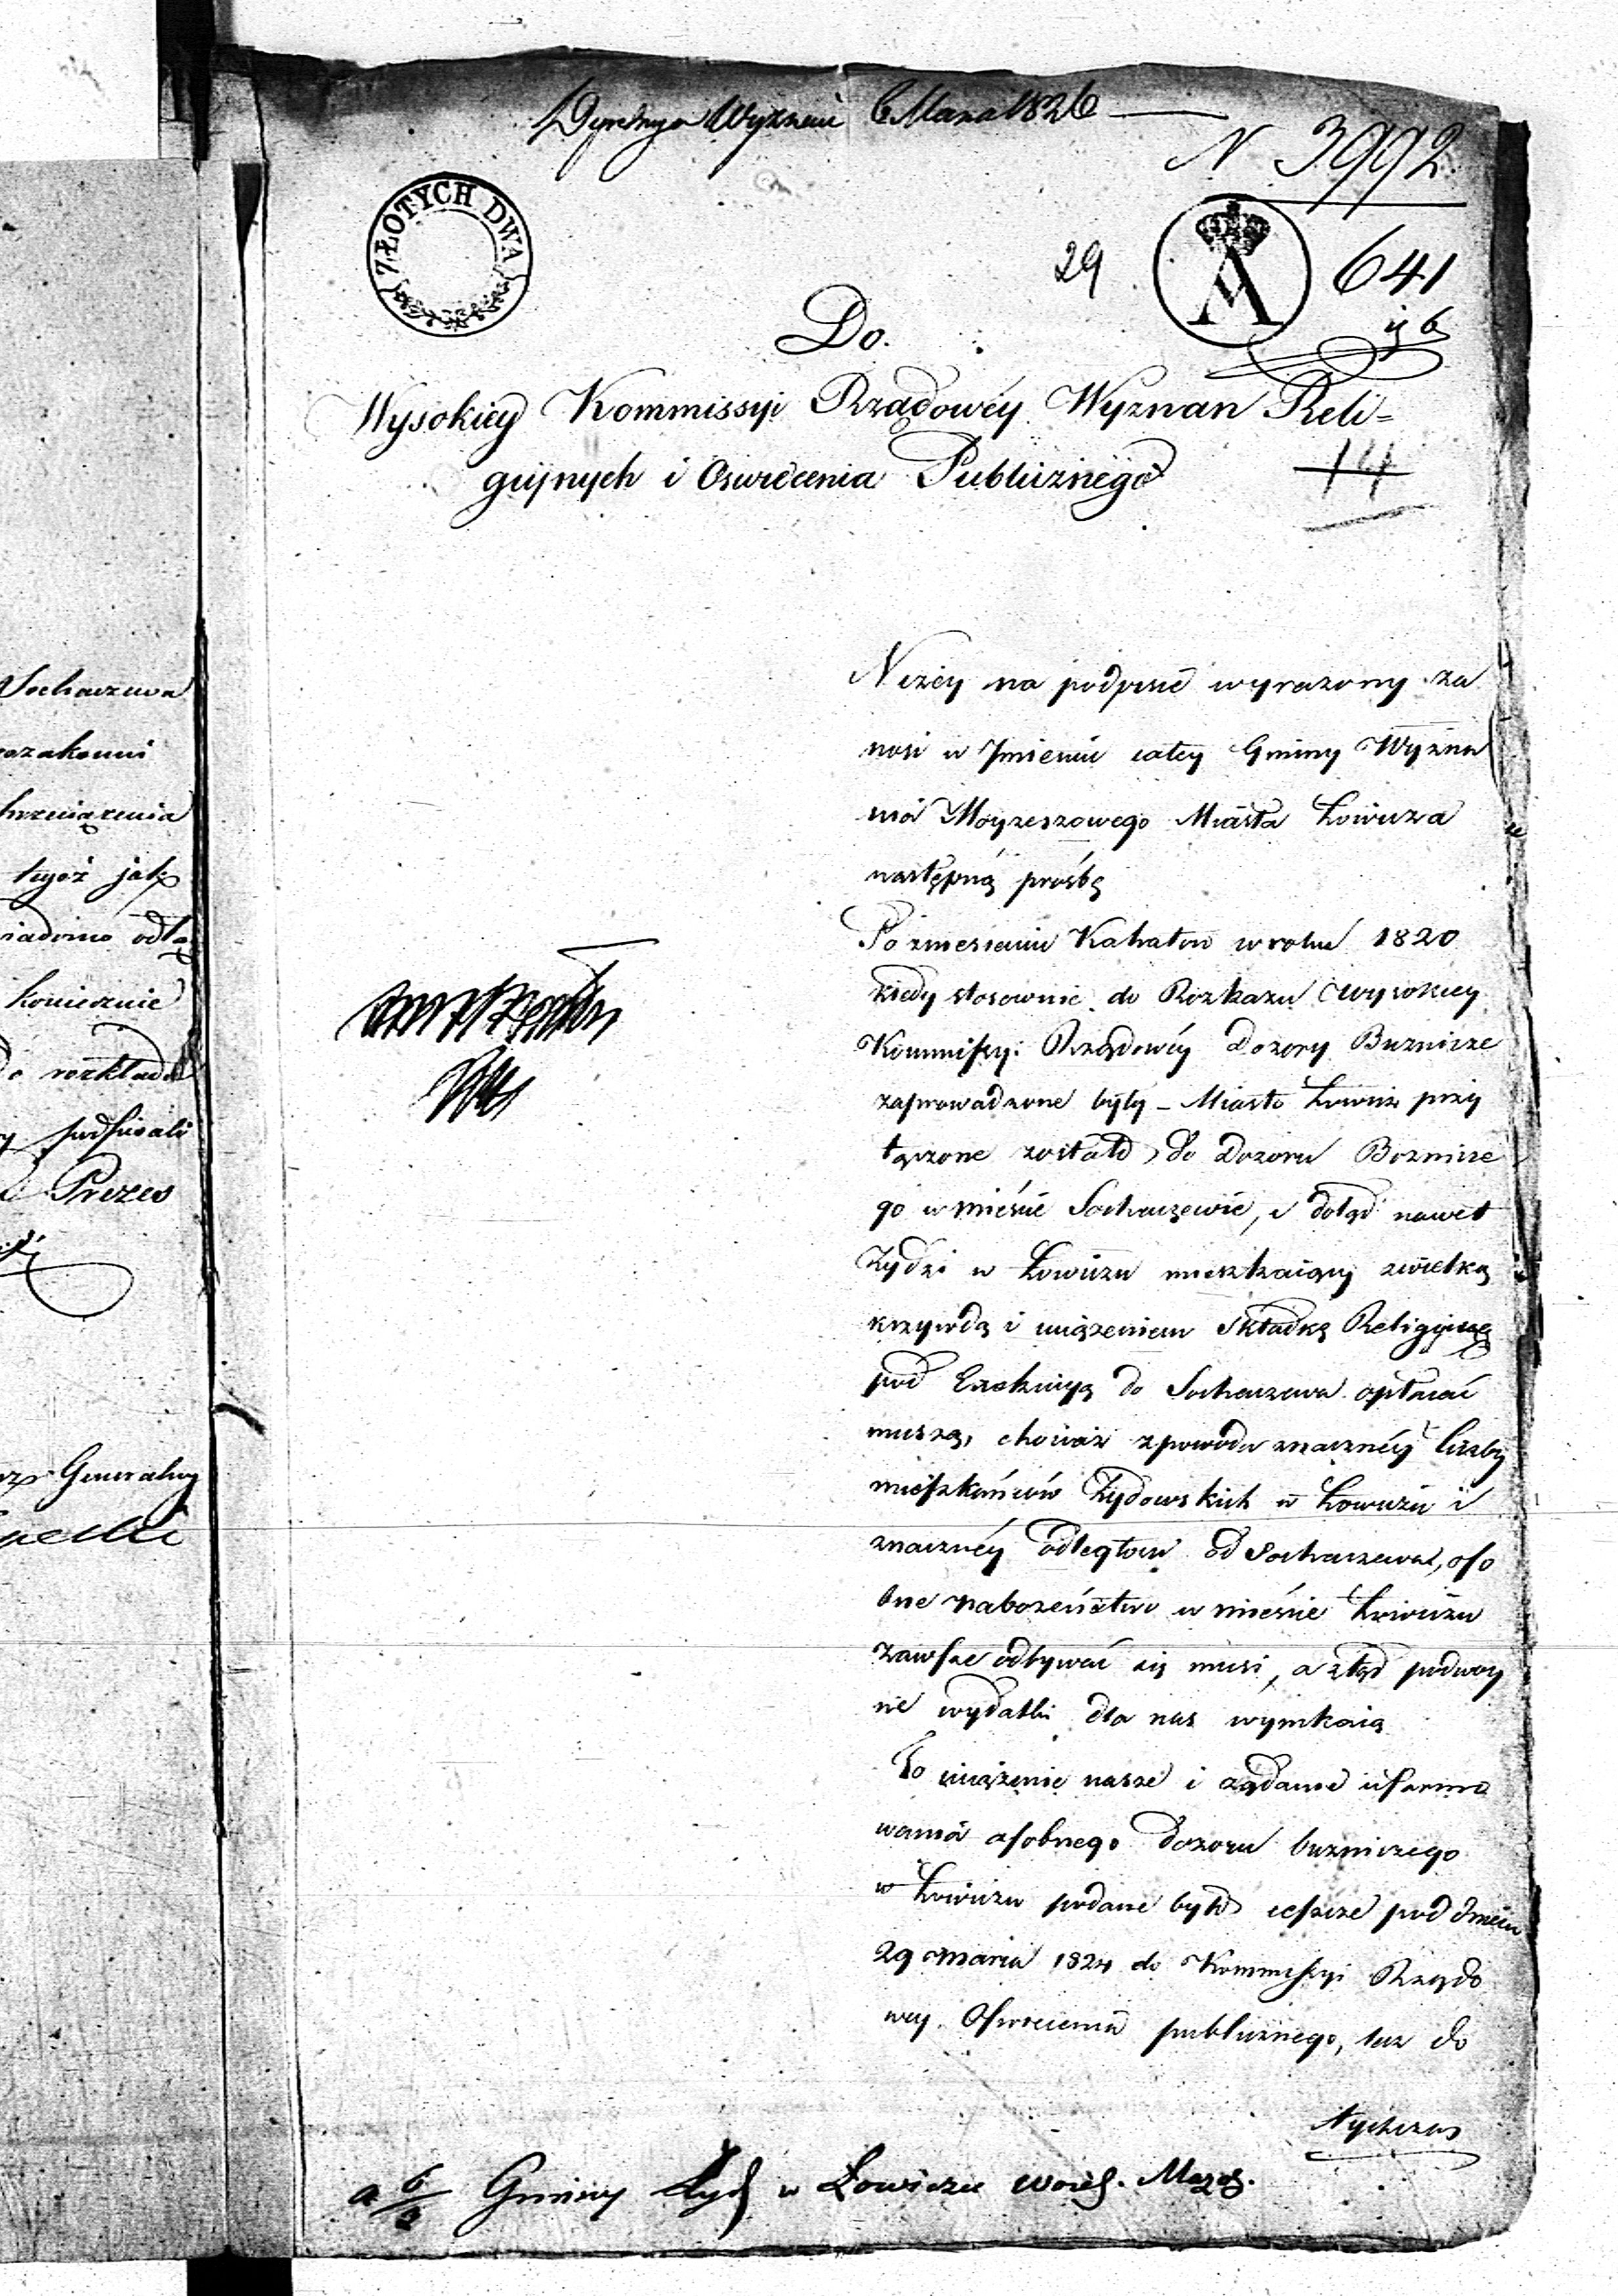 Wyznań 6 Marca 1826
N 3992
ZŁOTYCH DWA
29
A
641
14
Do.
Wysokiey Kommissyi Rządowéy Wyznan Reli=
giynych i Oswiecenia Publicznego
Niżéy na podpisie wyrażony za
nosi w Jmieniu całey Gminy Wyzna
nia Moyzeszowego Miasta Łowicza
następną prośbę
Po zniesieniu Kahałow w roku 1820
kiedy stosownie do Rozkazu Wysokiey
Kommissyi Rządowéy Dozory Buznicze
zaprowadzone były – Miasto Łowicz przy
łączone zostało do Dozoru Boznicze
go w mieście Sochaczewie, i dotąd nawet
Żydzi w Łowiczu mieszkaiący zwielką
krzywdą i uciążeniem Składkę Religiyną
pod Exekucyą do Sochaczewa opłacać
muszą, chociaż zpowodu znacznéy liczby
mieszkańców Żydowskich w Łowiczu i
znacznéy odległosci od Sochaczewa, oso
bne nabożeństwo w mieście Łowiczu
zawsze odbywać się musi, a ztąd podwoy
ne wydatki dla nas wynikaią
To uciążenie nasze i żądanie uformo
wania osobnego dozoru buzniczego
w Łowiczu podane było ieszcze pod dniem
29 marca 1824 do Kommissyi Rządo
wey Oswiecenia publicznego, lecz do
tychczas
a 6/3 Gminy Żyd w Łowiczu Woiew. Mazow.
Sochaczewa
rozakonni
tegoż jak
wiadomo odłą
koniecznie
do rozkładu
podpisali
Prezes
Generalny